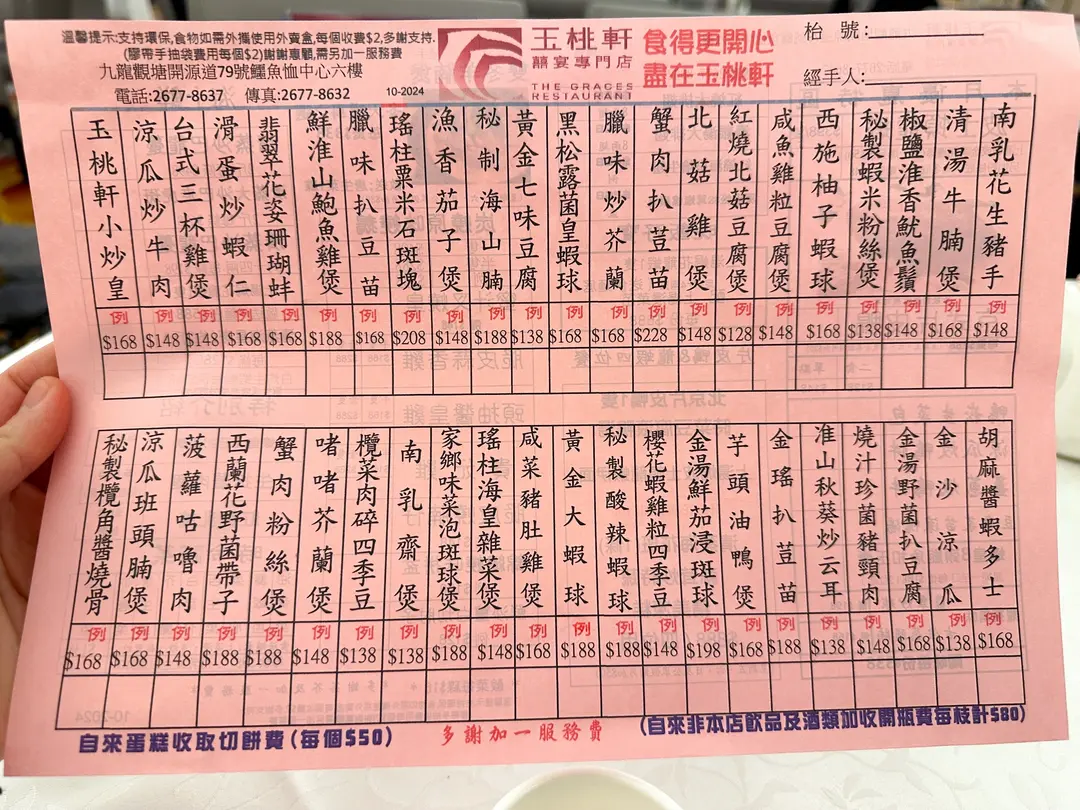 溫馨提示:支持環保,食物如需外攜使用外賣盒,每個收費$2,多謝支持.
(膠帶手抽袋費用每個$2)謝謝惠顧,需另加一服務費
九龍觀塘開源道79號鱷魚恤中心六樓
電話:2677-8637 傳真:2677-8632 10-2024
玉桃軒
囍宴專門店
THE GRACES
RESTAURANT
食得更開心
盡在玉桃軒
枱 號:
經手人:
南乳花生豬手 例 $148
清湯牛腩煲 例 $168
椒鹽淮香魷魚鬚 例 $148
秘製蝦米粉絲煲 例 $138
西施柚子蝦球 例 $168
咸魚雞粒豆腐煲 例 $148
紅燒北菇豆腐煲 例 $128
北菇雞煲 例 $148
蟹肉扒荳苗 例 $228
臘味炒芥蘭 例 $168
黑松露菌皇蝦球 例 $168
黃金七味豆腐 例 $138
秘制海山腩 例 $188
漁香茄子煲 例 $148
瑤柱粟米石斑塊 例 $208
臘味扒豆苗 例 $168
鮮淮山鮑魚雞煲 例 $188
翡翠花姿珊瑚蚌 例 $168
滑蛋炒蝦仁 例 $168
台式三杯雞煲 例 $148
涼瓜炒牛肉 例 $148
玉桃軒小炒皇 例 $168
胡麻醬蝦多士 例 $168
金沙涼瓜 例 $138
金湯野菌扒豆腐 例 $168
燒汁珍菌豬頸肉 例 $148
淮山秋葵炒云耳 例 $138
金瑤扒荳苗 例 $188
芋頭油鴨煲 例 $168
金湯鮮茄浸斑球 例 $198
櫻花蝦雞粒四季豆 例 $148
秘製酸辣蝦球 例 $188
黃金大蝦球 例 $188
咸菜豬肚雞煲 例 $168
瑤柱海皇雜菜煲 例 $148
家鄉味菜泡斑球煲 例 $188
南乳齋煲 例 $138
欖菜肉碎四季豆 例 $138
啫啫芥蘭煲 例 $148
蟹肉粉絲煲 例 $188
西蘭花野菌帶子 例 $188
菠蘿咕嚕肉 例 $148
涼瓜班頭腩煲 例 $168
秘製欖角醬燒骨 例 $168
自來蛋糕收取切餅費(每個$50) 多謝加一服務費 (自來非本店飲品及酒類加收開瓶費每枝計$80)